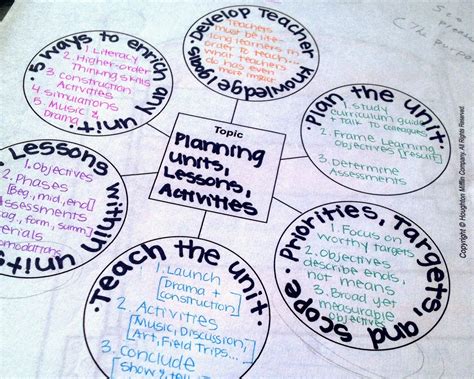 Topic
Planning
units,
Lessons,
Activities
Develop Teacher
knowledge/goals
Teachers
must be life-
long learners in
order to teach...
what teachers
do has even
more impact
Plan the unit
1. study
curriculum guide
Talk to colleagues
2. Frame Learning
Objectives [result]
3. Determine
Assessments
Priorities, Targets,
and scope
1. Focus on
worthy targets
2. Objectives
describe ends,
not means
3. Broad yet
measurable
objectives
Teach the unit
1. Launch
[Drama +
construction]
2. Activities
[Music, Discussion,
Art, Field Trips...
3. conclude
[show & tell
Lessons
within units
1. Objectives
2. Phases
[Beg, mid, end]
ssessments
ag, form, summ]
terials
omodations
5 ways to enrich any unit
1. Literacy
2. Higher-order
Thinking skills
3. Construction
Activities
4. simulations
5. Music &
Drama
Copyright © Houghton Mifflin Company. All Rights Reserved.